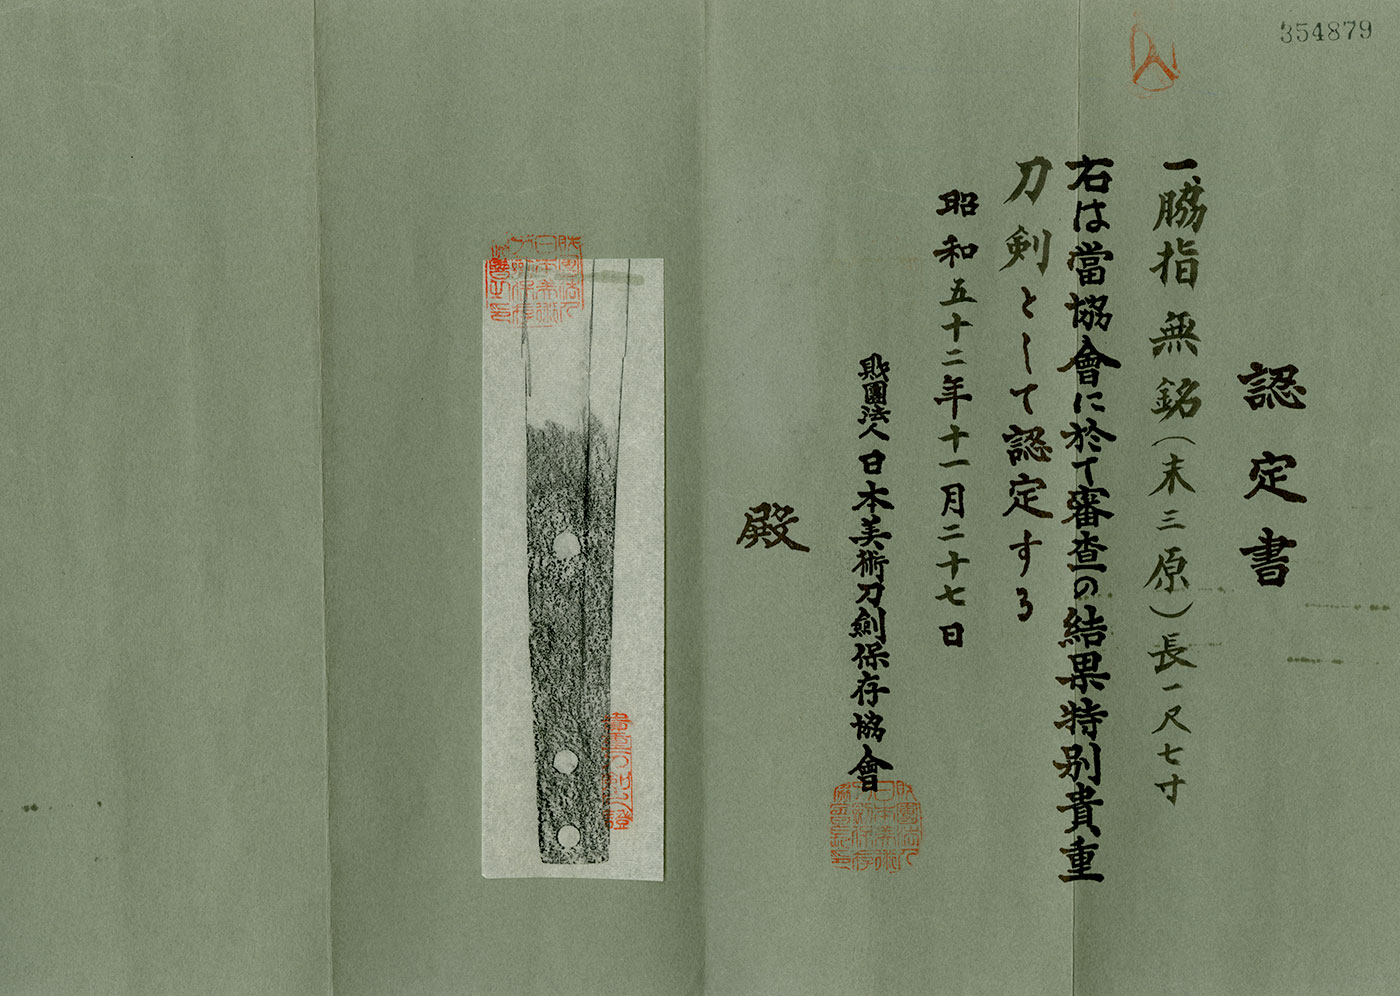 354879
認定書
一、脇指 無銘（末三原）長一尺七寸
右は當協會に於て審査の結果特別貴重
刀剣として認定する
昭和五十二年十一月二十七日
財團法人日本美術刀劍保存協會
殿